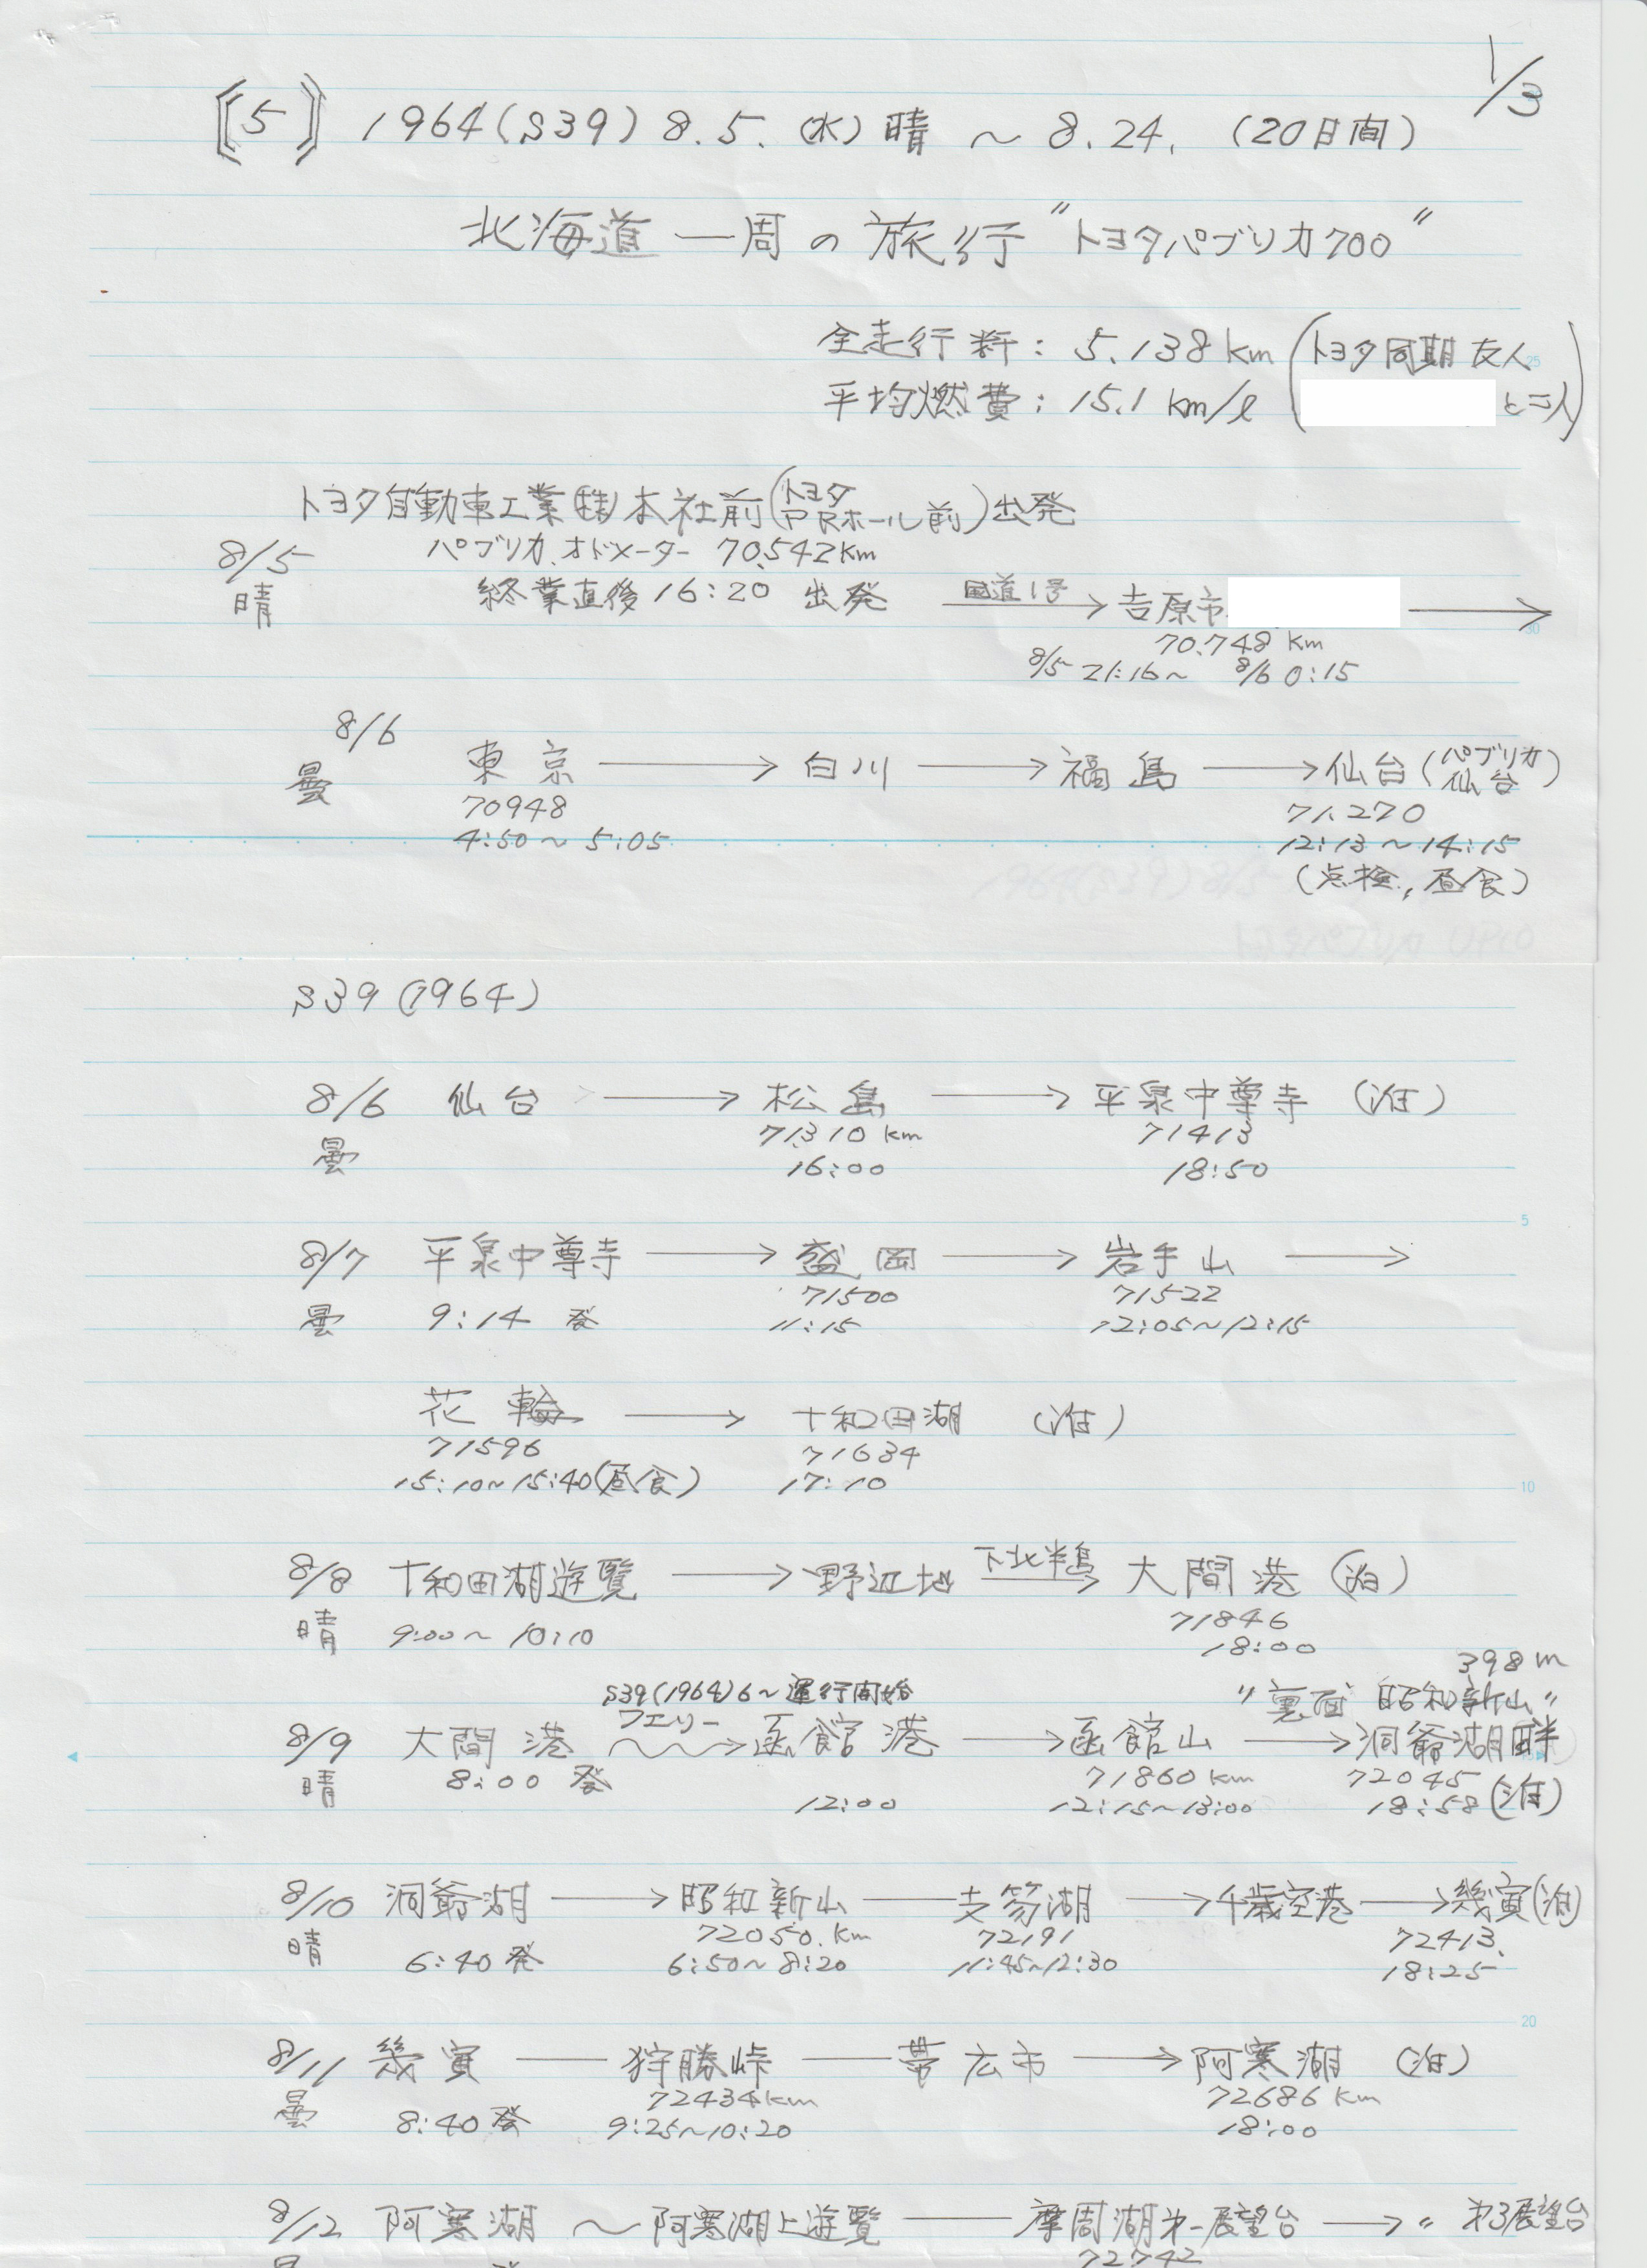 1/3
〘5〙 1964(S39) 8.5.(水) 晴 ～ 8.24. (20日間)
北海道一周の旅行 〃トヨタパブリカ700〃
全走行料： 5.138km (トヨタ同期友人
平均燃費： 15.1 km/ℓ と二人)
トヨタ自動車工業(株)本社前(トヨタPRホール前)出発
8/5 パブリカ、オドメーター 70.542km
晴 終業直後16:20 出発 国道1号 → 吉原市 →
70.748 km
8/5 21:16～ 8/6 0:15
8/6
曇 東京 → 白川 → 福島 → 仙台(パブリカ仙台)
70948 71.270
4:50～5:05 12:13～14:15
(点検,昼食)
S39(1964)
8/6 仙台 → 松島 → 平泉中尊寺 (泊)
曇 71310 km 71413
16:00 18:50
8/7 平泉中尊寺 → 盛岡 → 岩手山 →
71500 71522
曇 9:14 発 11:15 12:05～12:15
花輪 → 十和田湖 (泊)
71596 71634
15:10～15:40(昼食) 17:10
8/8 十和田湖遊覧 → 野辺地 下北半島 → 大間港 (泊)
晴 9:00～10:10 71846
18:00
398m
S39(1964)6～運行開始 〃裏面 昭和新山〃
8/9 大間港 フェリー → 函館港 → 函館山 → 洞爺湖畔
晴 8:00 発 71860km 72045
12:00 12:15～13:00 18:58 (泊)
8/10 洞爺湖 → 昭和新山 — 支笏湖 → 千歳空港 → 幾寅(泊)
晴 72050.km 72191 72413.
6:40発 6:50～8:20 11:45～12:30 18:25
8/11 幾寅 — 狩勝峠 — 帯広市 → 阿寒湖 (泊)
曇 72434km 72686 km
8:40発 9:25～10:20 18:00
8/12 阿寒湖 ～ 阿寒湖上遊覧 — 摩周湖第一展望台 → 〃 第3展望台
72742